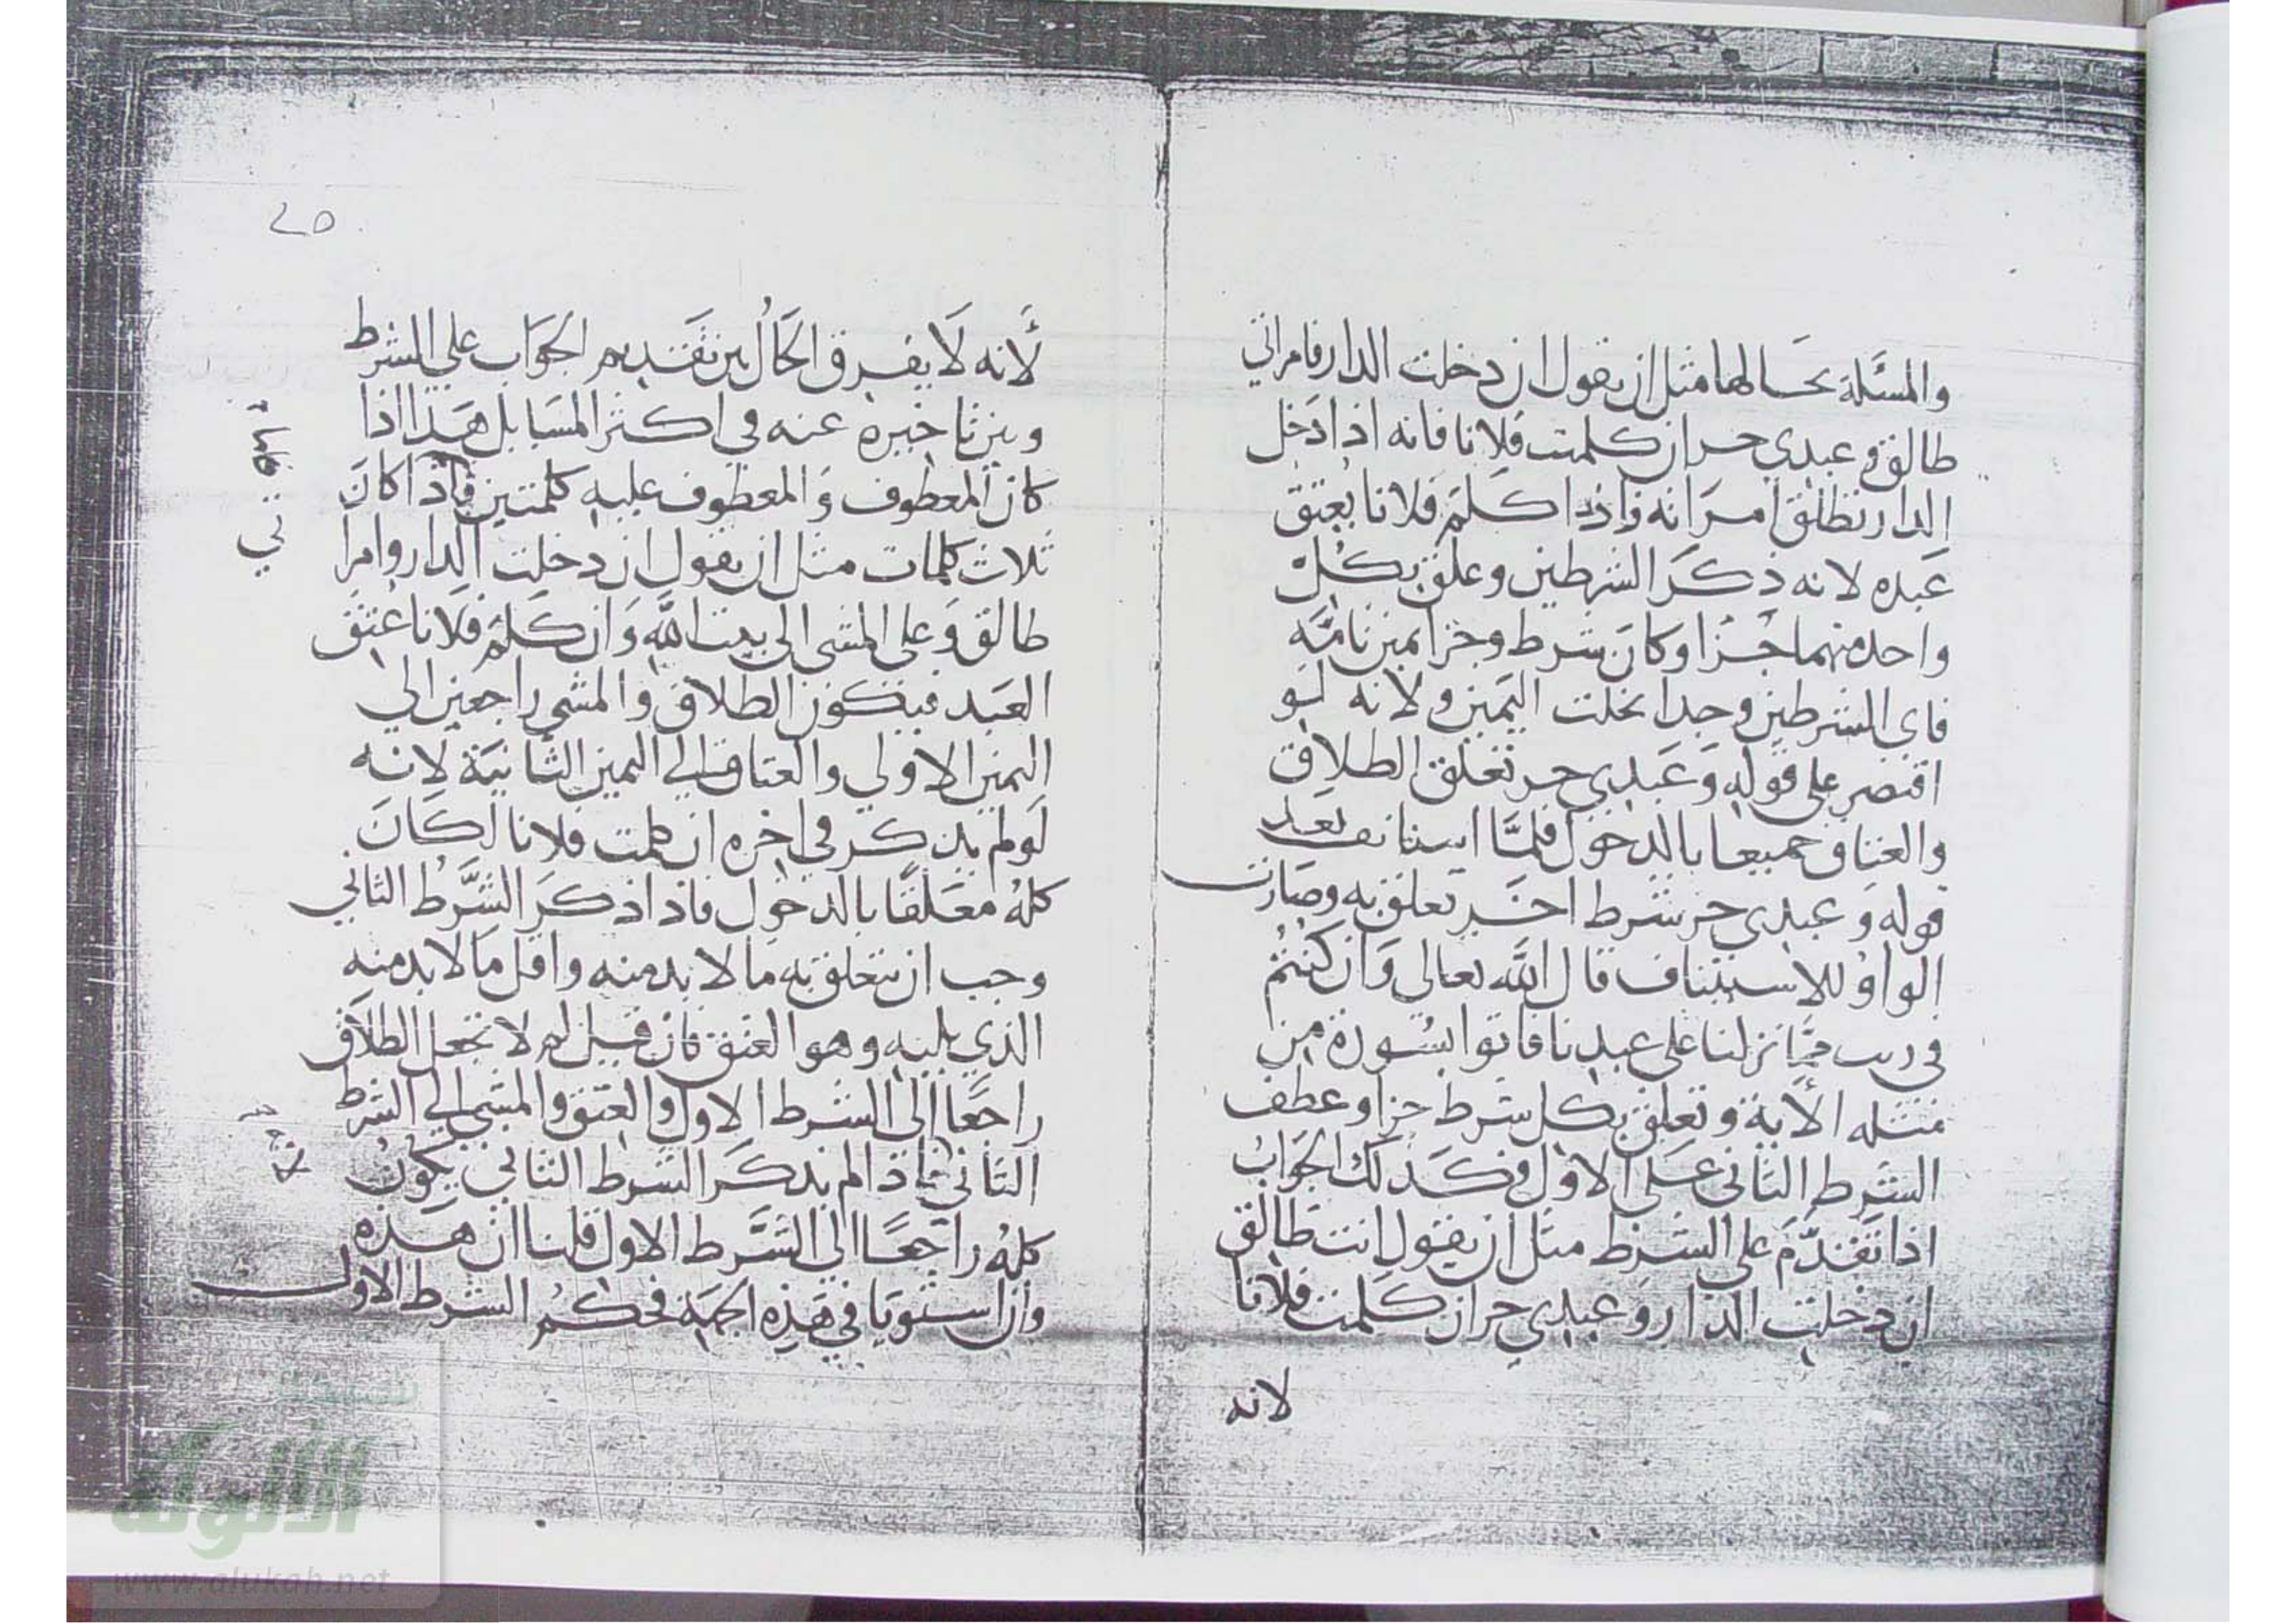 والمسئلة بحالها مثل ان يقول ان دخلت الدار فامراتي
طالق وعبدي حر ان كلمت فلانا فانه اذا دخل
الدار تطلق امراته واذا كلم فلانا يعتق
عبده لانه ذكر الشرطين وعلق بكل
واحد منهما جزا وكان شرط وجزا يمين تامة
فاي الشرطين وجدا نحلت اليمين ولانه لو
اقتصر على قوله وعبدي حر تعلق الطلاق
والعتاق جميعا بالدخول فلما استانف بعد
قوله وعبدي حر شرط اخر تعلق به وصارت
الواو للاستيناف قال الله تعالى وان كنتم
في ريب مما نزلنا على عبدنا فاتوا بسورة من
مثله الأية وتعلق بكل شرط جزا وعطف
الشرط الثاني على الاول وكذلك الجواب
اذا تقدم على الشرط مثل ان يقول انت طالق
ان دخلت الدار وعبدي حر ان كلمت فلانا
لانه
٢٥
لأنه لا يفرق الحال بين تقديم الجواب على الشرط
وبين تاخيره عنه في اكثر المسايل هذا اذا
كان المعطوف والمعطوف عليه كلمتين فاذا كان
ثلاث كلمات مثل ان يقول ان دخلت الدار وامرا
طالق وعلي المشى الى بيت الله وان كلم فلانا عتق
العبد فيكون الطلاق والمشي راجعين الى
اليمين الاولى والعتاق الى اليمين الثانية لانه
لو لم يذكر في اخره ان كلمت فلانا لكان
كله معلقا بالدخول فاذا ذكر الشرط الثاني
وجب ان يتعلق به ما لا بد منه واقل ما لا بد منه
الذي يليه وهو العتق فان قيل لم لا تجعل الطلاق
راجعا الى الشرط الاول والعتق والمشي الى الشرط
الثاني فاذا لم يذكر الشرط الثاني يكون
كله راجعا الى الشرط الاول قلنا ان هذه
وان استويا في هذه الجهة فحكم الشرط الاول
شبكة
الألوكة
www.alukah.net